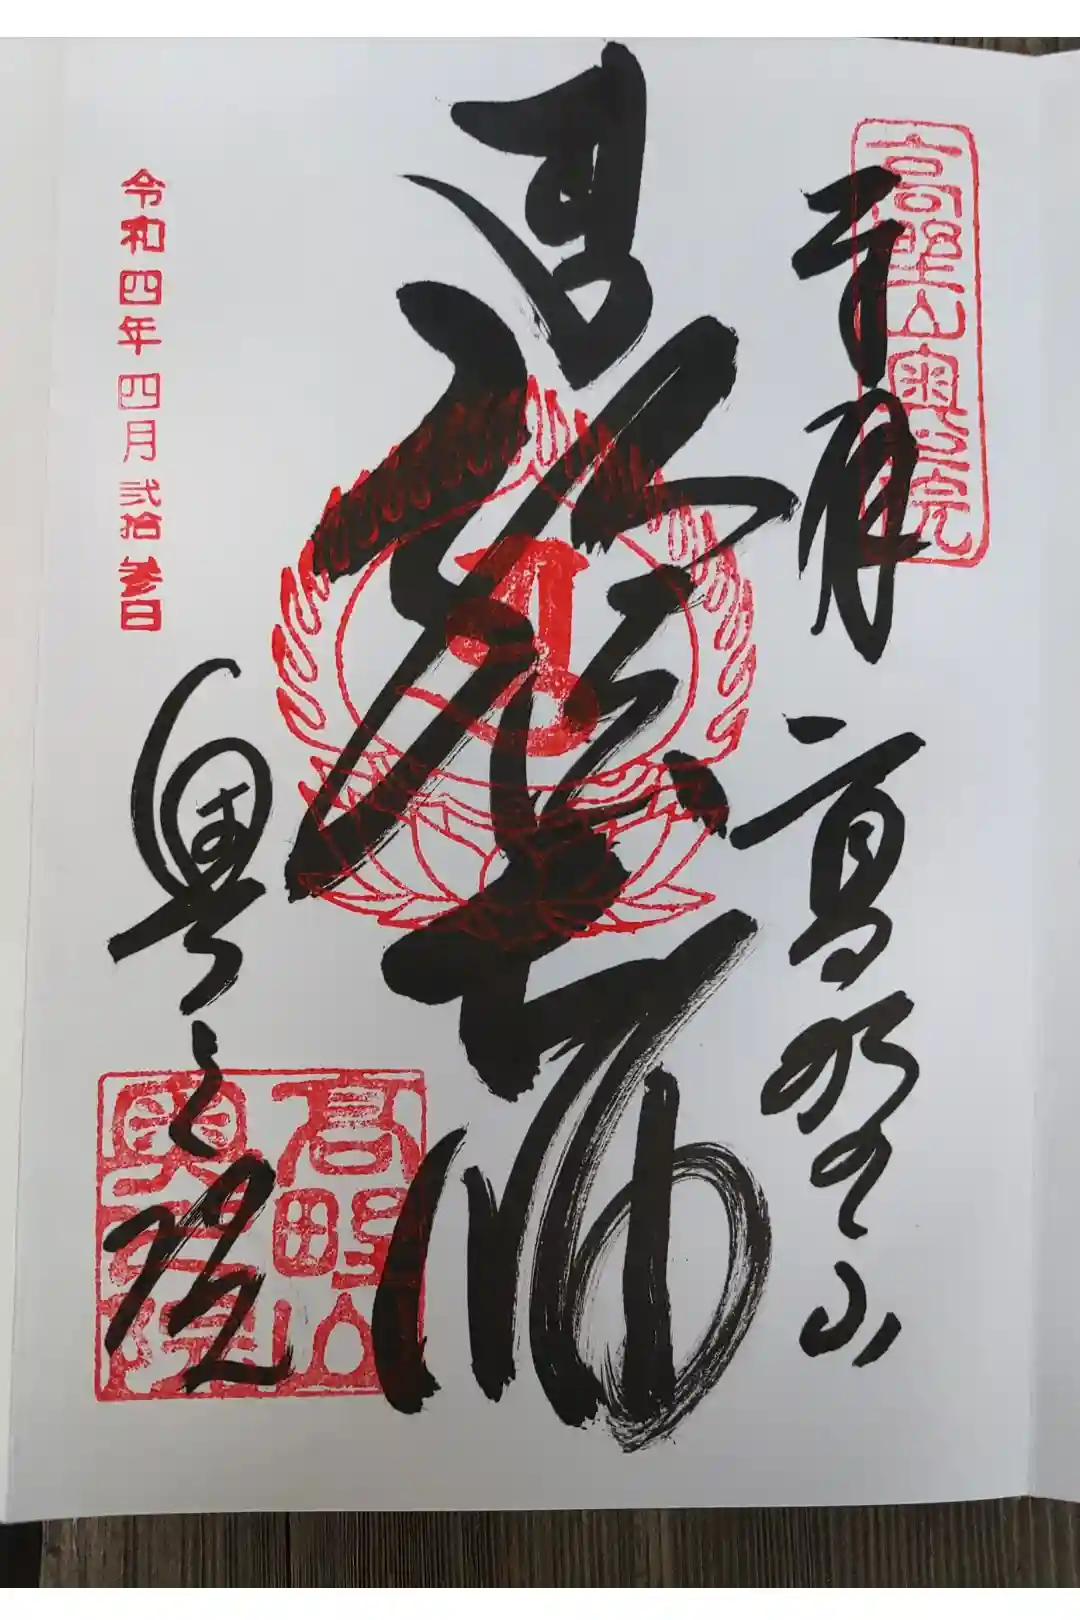 高野山奥之院
奉拝 高野山
弘法大師
奥之院
高野山
奥之院
令和四年四月弐拾参日